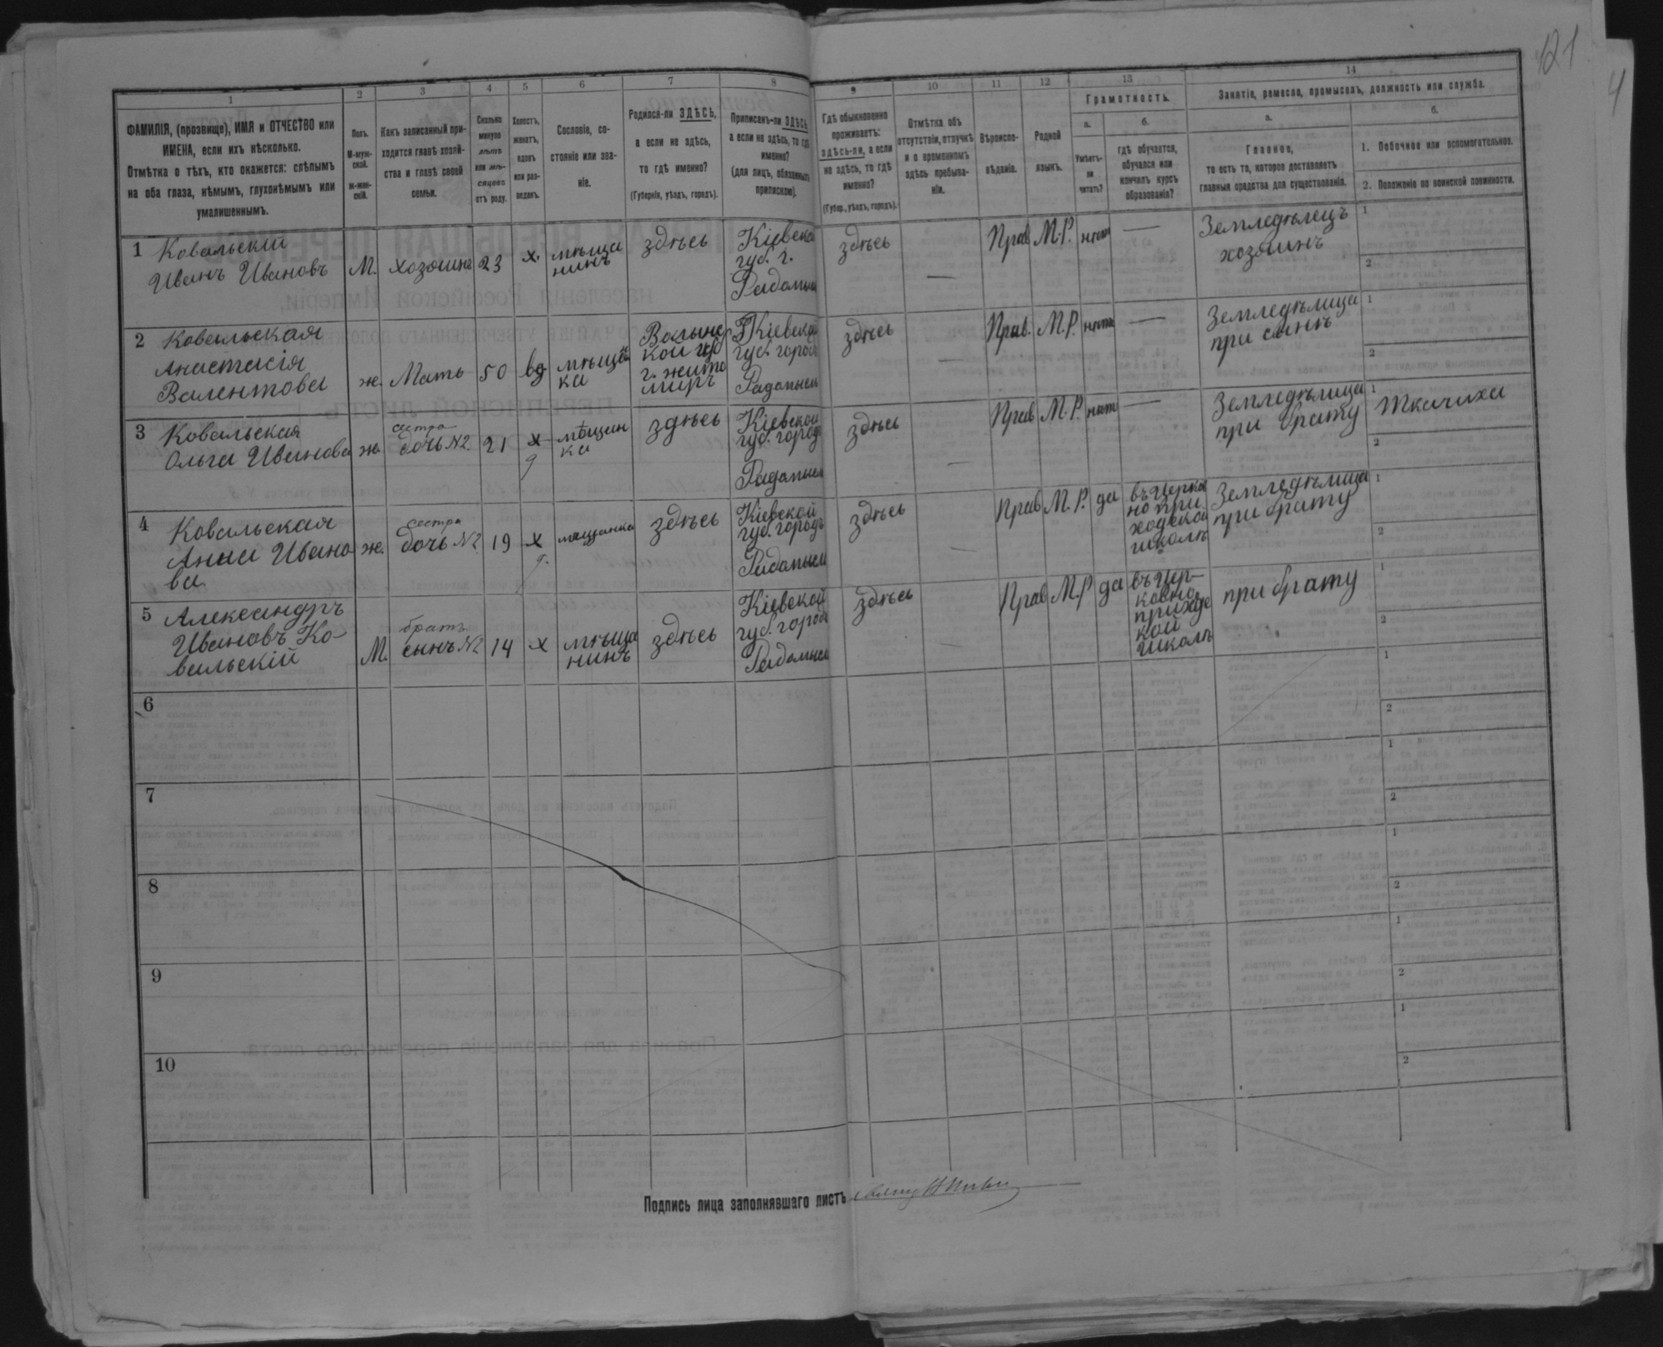 121
4
1
2
3
4
5
6
7
8
9
10
11
12
13
14
ФАМИЛІЯ, (прозвище), ИМЯ и ОТЧЕСТВО или
ИМЕНА, если ихъ нѣсколько.
Отмѣтка о тѣхъ, кто окажется: слѣпымъ
на оба глаза, нѣмымъ, глухонѣмымъ или
умалишеннымъ.
Полъ.
М-муж-
ской.
ж-жен-
скій.
Какъ записанный при-
ходится главѣ хозяй-
ства и главѣ своей
семьи.
Сколько
минуло
лѣтъ
или мѣ-
сяцевъ
отъ роду.
Холостъ,
женатъ,
вдовъ
или раз-
веденъ.
Сословіе, со-
стояніе или зва-
ніе.
Родился-ли ЗДѢСЬ,
а если не здѣсь,
то гдѣ именно?
(Губернія, уѣздъ, городъ).
Приписанъ-ли ЗДѢСЬ,
а если не здѣсь, то гдѣ
именно?
(для лицъ, обязанныхъ
припискою).
Гдѣ обыкновенно
проживаетъ:
здѣсь-ли, а если
не здѣсь, то гдѣ
именно?
(Губер., уѣздъ, городъ).
Отмѣтка объ
отсутствіи, отлучкѣ
и о временномъ
здѣсь пребыва-
ніи.
Вѣроиспо-
вѣданіе.
Родной
языкъ.
Грамотность.
а.
Умѣетъ-
ли
читать?
б.
гдѣ обучается,
обучался или
кончилъ курсъ
образованія?
Занятіе, ремесло, промыселъ, должность или служба.
а.
Главное,
то есть то, которое доставляетъ
главныя средства для существованія.
б.
1. Побочное или вспомогательное.
2. Положеніе по воинской повинности.
1
Ковальскій
Иванъ Ивановъ
М.
хозяинъ
23
х.
мѣща
нинъ
здѣсь
Кіевской
губ. г.
Радомысл
здѣсь
—
Прав
М.Р.
нѣтъ
—
Земледѣлецъ
хозяинъ
1
2
2
Ковальская
Анастасія
Валентова
ж.
Мать
50
вд
мѣщан
ка
Волынс
кой губ
г. Жито
миръ
Кіевской
губ. городъ
Радомысл
здѣсь
—
Прав.
М.Р.
нѣтъ
—
Земледѣлица
при сынѣ
1
2
3
Ковальская
Ольга Иванова
ж.
сестра
дочь №2.
21
х
д
мѣщан
ка
здѣсь
Кіевской
губ. городъ
Радомысл
здѣсь
—
Прав
М.Р.
нѣт
—
Земледѣлица
при брату
1
Ткачиха
2
4
Ковальская
Анна Ивано
ва
ж.
сестра
дочь №2
19
х
д.
мѣщанка
здѣсь
Кіевской
губ. городъ
Радомысл
здѣсь
—
Прав
М.Р.
да
въ церков
но при
ходской
школѣ
Земледѣлица
при брату
1
2
5
Александръ
Ивановъ Ко-
вальскій
М.
братъ
сынъ №2
14
х
мѣща
нинъ
здѣсь
Кіевской
губ. город
Радомысл
здѣсь
—
Прав
М.Р
да
въ цер-
ковно
приходс
кой
школѣ
при брату
1
2
6
1
2
7
1
2
8
1
2
9
1
2
10
1
2
Подпись лица заполнявшаго листъ